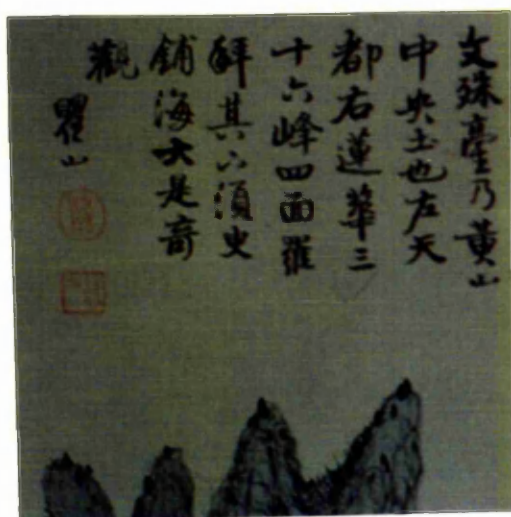 文殊臺乃黃山
中央土也左天
都右蓮華三
十六峰四面羅
拜其下須臾
鋪海大是奇
觀
瞿山